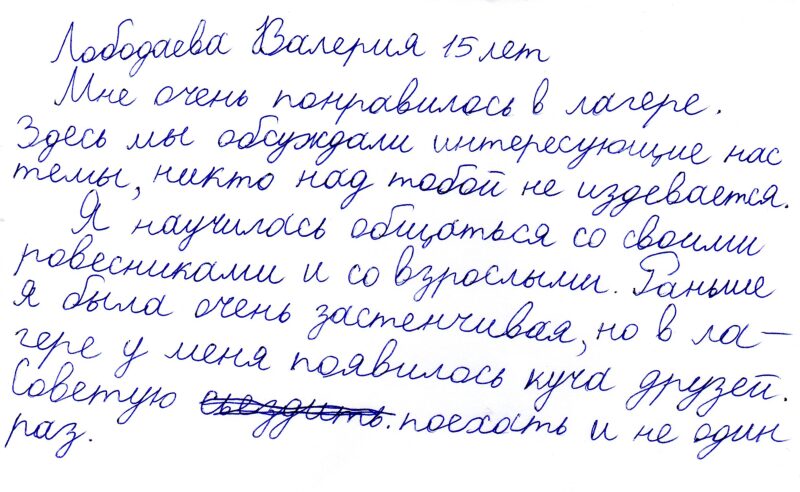 Лободаева Валерия 15 лет
Мне очень понравилось в лагере.
Здесь мы обсуждали интересующие нас
темы, никто над тобой не издевается.
Я научилась общаться со своими
ровесниками и со взрослыми. Раньше
я была очень застенчивая, но в ла-
гере у меня появилось куча друзей.
Советую съездить. поехать и не один
раз.